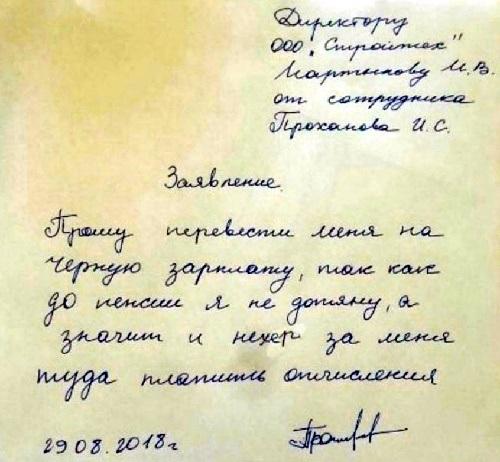 Директору
ООО "Стройтех"
Мартынову И.В.
от сотрудника
Проханова И.С.
Заявление.
Прошу перевести меня на
черную зарплату, так как
до пенсии я не дотяну, а
значит и нехер за меня
туда платить отчисления
29.08.2018г